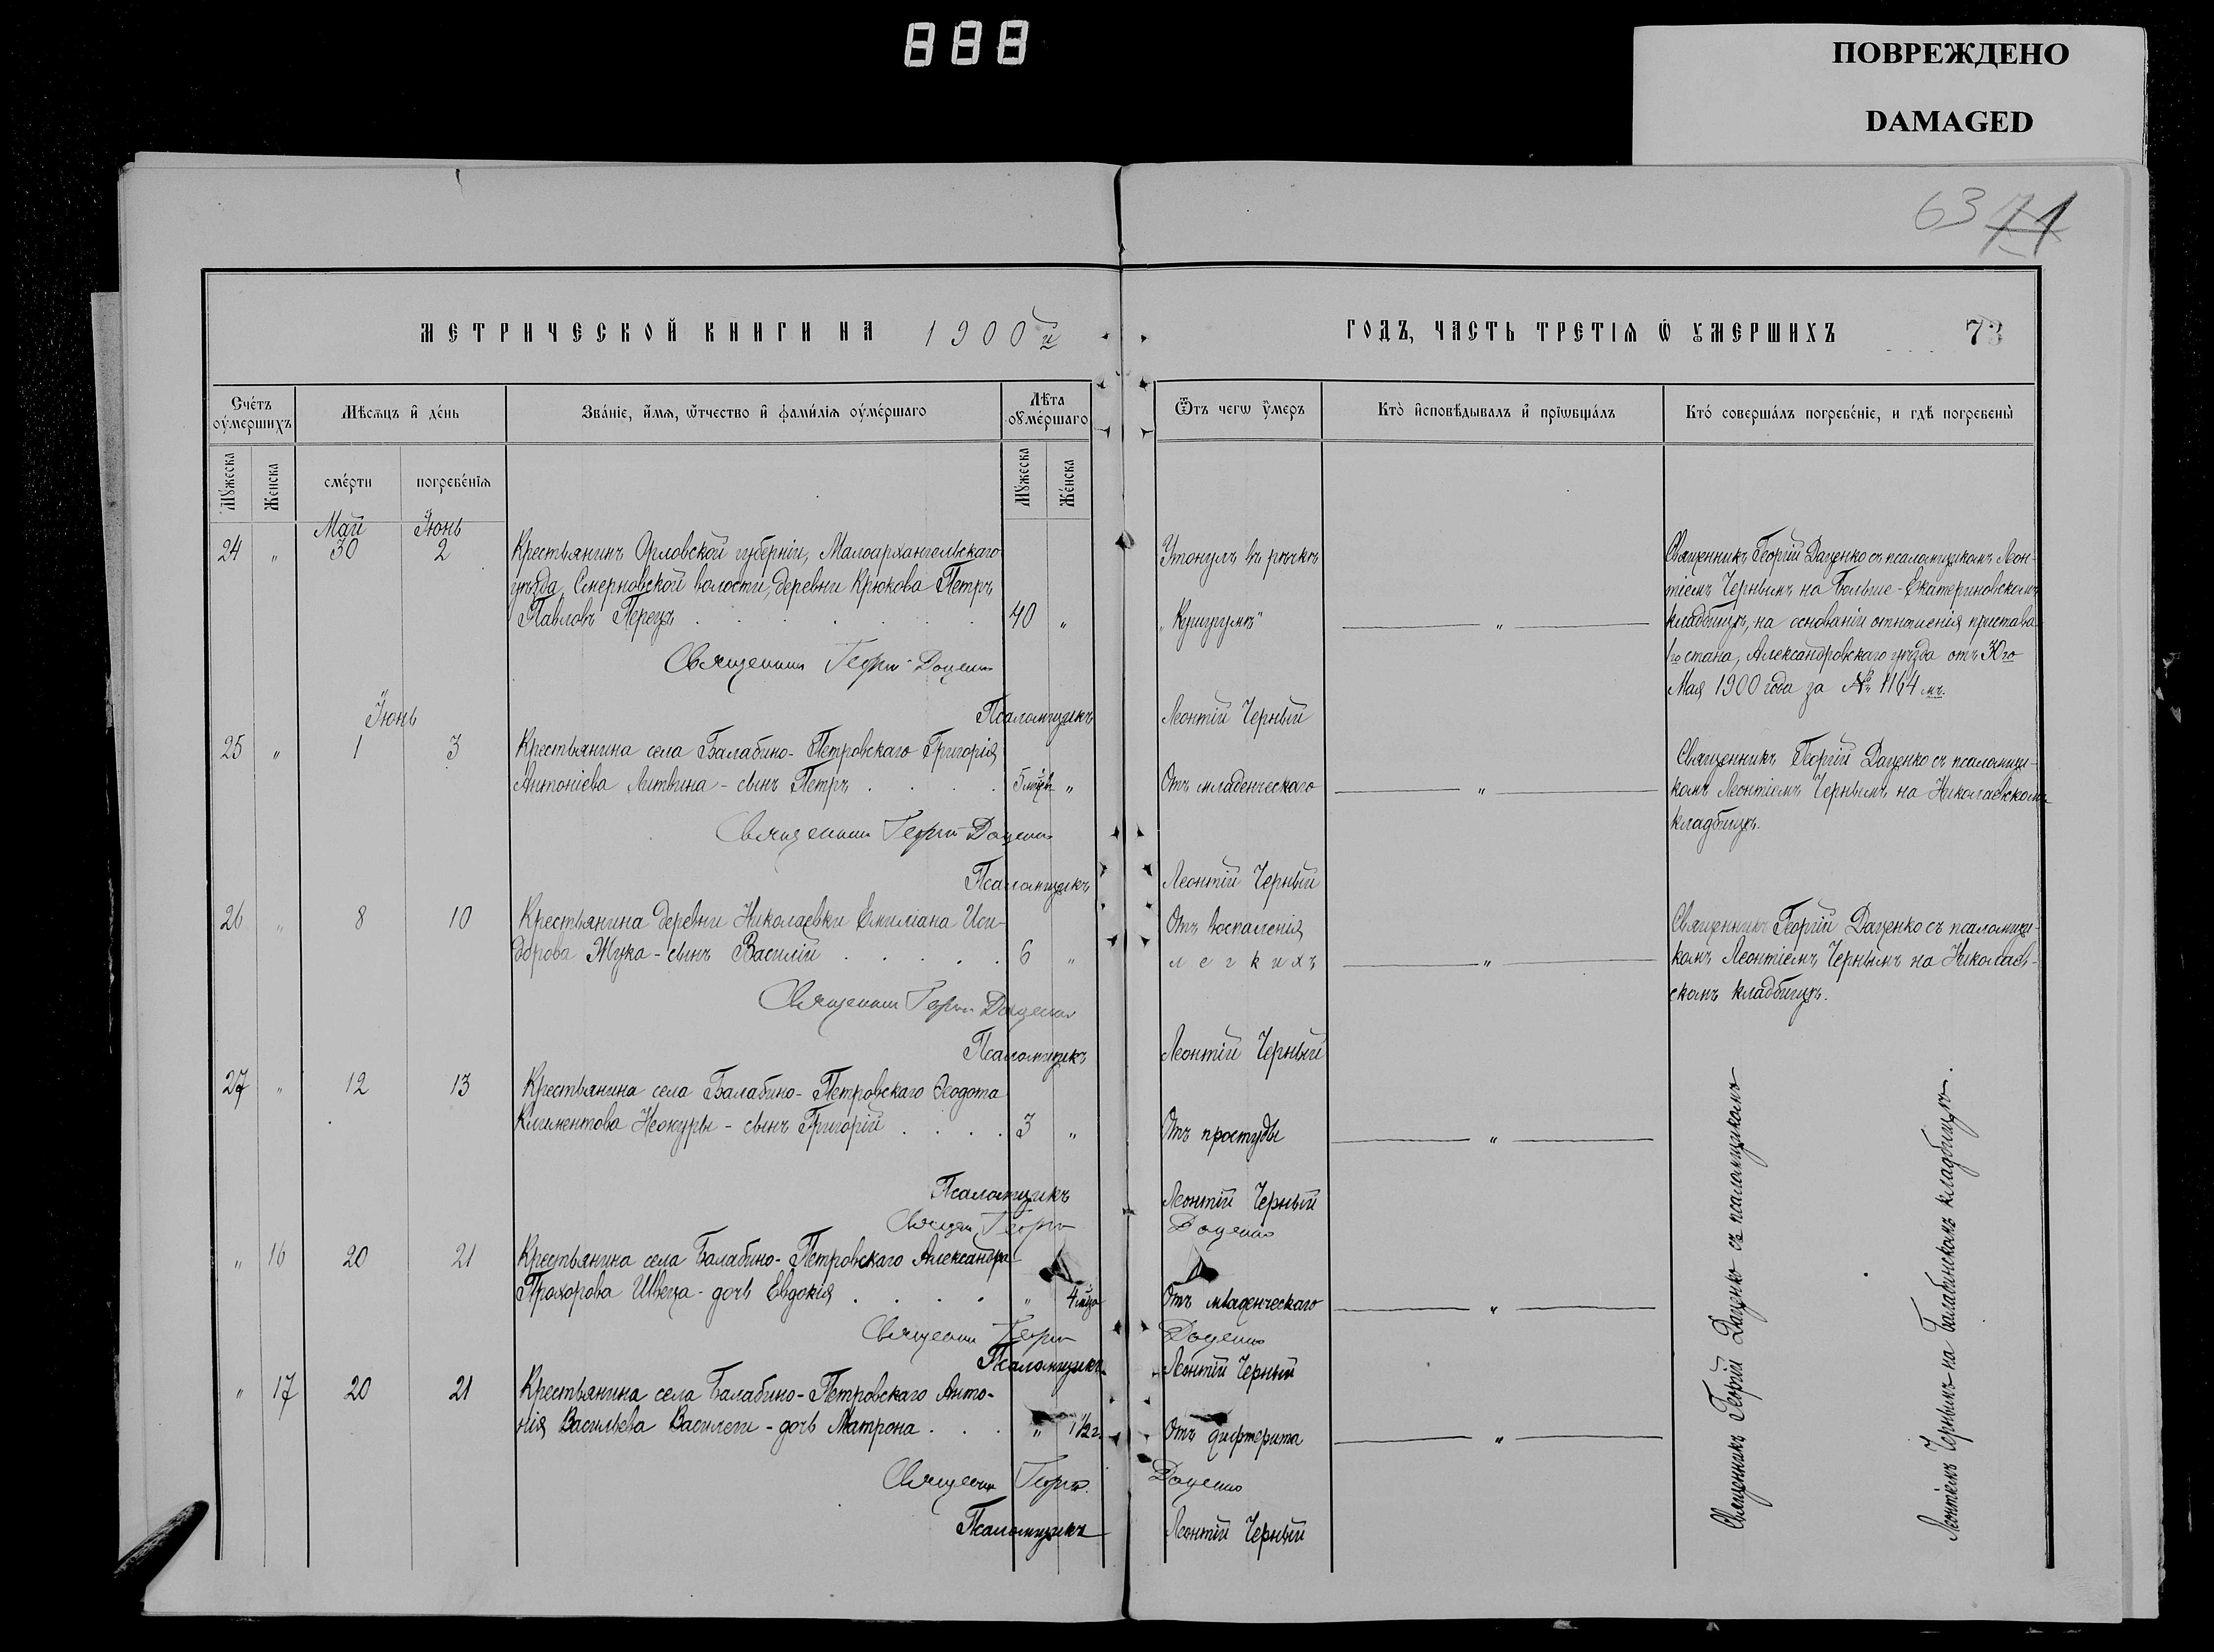 888
ПОВРЕЖДЕНО
DAMAGED
63 71
МЕТРИЧЕСКОЙ КНИГИ НА 1900й
ГОДЪ, ЧАСТЬ ТРЕТІѦ Ѿ ОУМЕРШИХЪ 73
Счетъ оумершихъ
Мѣсѧцъ и день
Званіе, имѧ, ѿчество и фамиліѧ оумершаго
Лѣта оумершаго
Ѿъ чегѡ оумеръ
Кто исповѣдывалъ и пріѡбщалъ
Кто совершалъ погребеніе, и гдѣ погребены
Мужеска Женска смерти погребеніѧ Мужеска Женска
Май Іюнь
24 „ 30 2 Крестьянинъ Орловской губерніи, Малоархангельскаго
уѣзда, волости, деревни Крюкова Петръ
Павловъ Перецъ . . . . . . . 40 „
Утонулъ въ рѣчкѣ
„ „
Священникъ Георгій Даценко съ псаломщикомъ Леон-
тіемъ Чернымъ на Больше-Екатериновскомъ
кладбищѣ, на основаніи отношенія пристава
1го стана, Александровскаго уѣзда отъ 30го
Мая 1900 года за № 1164 мъ.
Священникъ Георгій Даценко
Псаломщикъ Леонтій Черный
Іюнь
25 „ 1 3 Крестьянина села Балабино-Петровскаго Григорія
Антоніева Литвина - сынъ Петръ . . . . 5 мѣс. „
Отъ младенческаго „
Священникъ Георгій Даценко съ псаломщи-
комъ Леонтіемъ Чернымъ на Николаевскомъ
кладбищѣ.
Священникъ Георгій Даценко
Псаломщикъ Леонтій Черный
26 „ 8 10 Крестьянина деревни Николаевки Емиліана Иси-
дорова Жука - сынъ Василій . . . . . 6 „
Отъ воспаленія
легкихъ „
Священникъ Георгій Даценко съ псаломщи-
комъ Леонтіемъ Чернымъ на Николаев-
скомъ кладбищѣ.
Священникъ Георгій Даценко
Псаломщикъ Леонтій Черный
27 „ 12 13 Крестьянина села Балабино-Петровскаго Ѳеодота
Климентова Неокуры - сынъ Григорій . . . . 3 „
Отъ простуды „
Псаломщикъ Леонтій Черный
Священ. Георгій Даценко
„ 16 20 21 Крестьянина села Балабино-Петровскаго Александра
Прохорова Швеца - дочь Евдокія . . . . „ 4 мѣс.
Отъ младенческаго „
Священникъ Георгій Даценко
Псаломщикъ Леонтій Черный
„ 17 20 21 Крестьянина села Балабино-Петровскаго Анто-
нія Васильева - дочь Матрона . . . „ 1½ г.
Отъ дифтерита „
Священникъ Георгій Даценко
Псаломщикъ Леонтій Черный
Священникъ Георгій Даценко съ псаломщикомъ
Леонтіемъ Чернымъ на Балабинскомъ кладбищѣ.